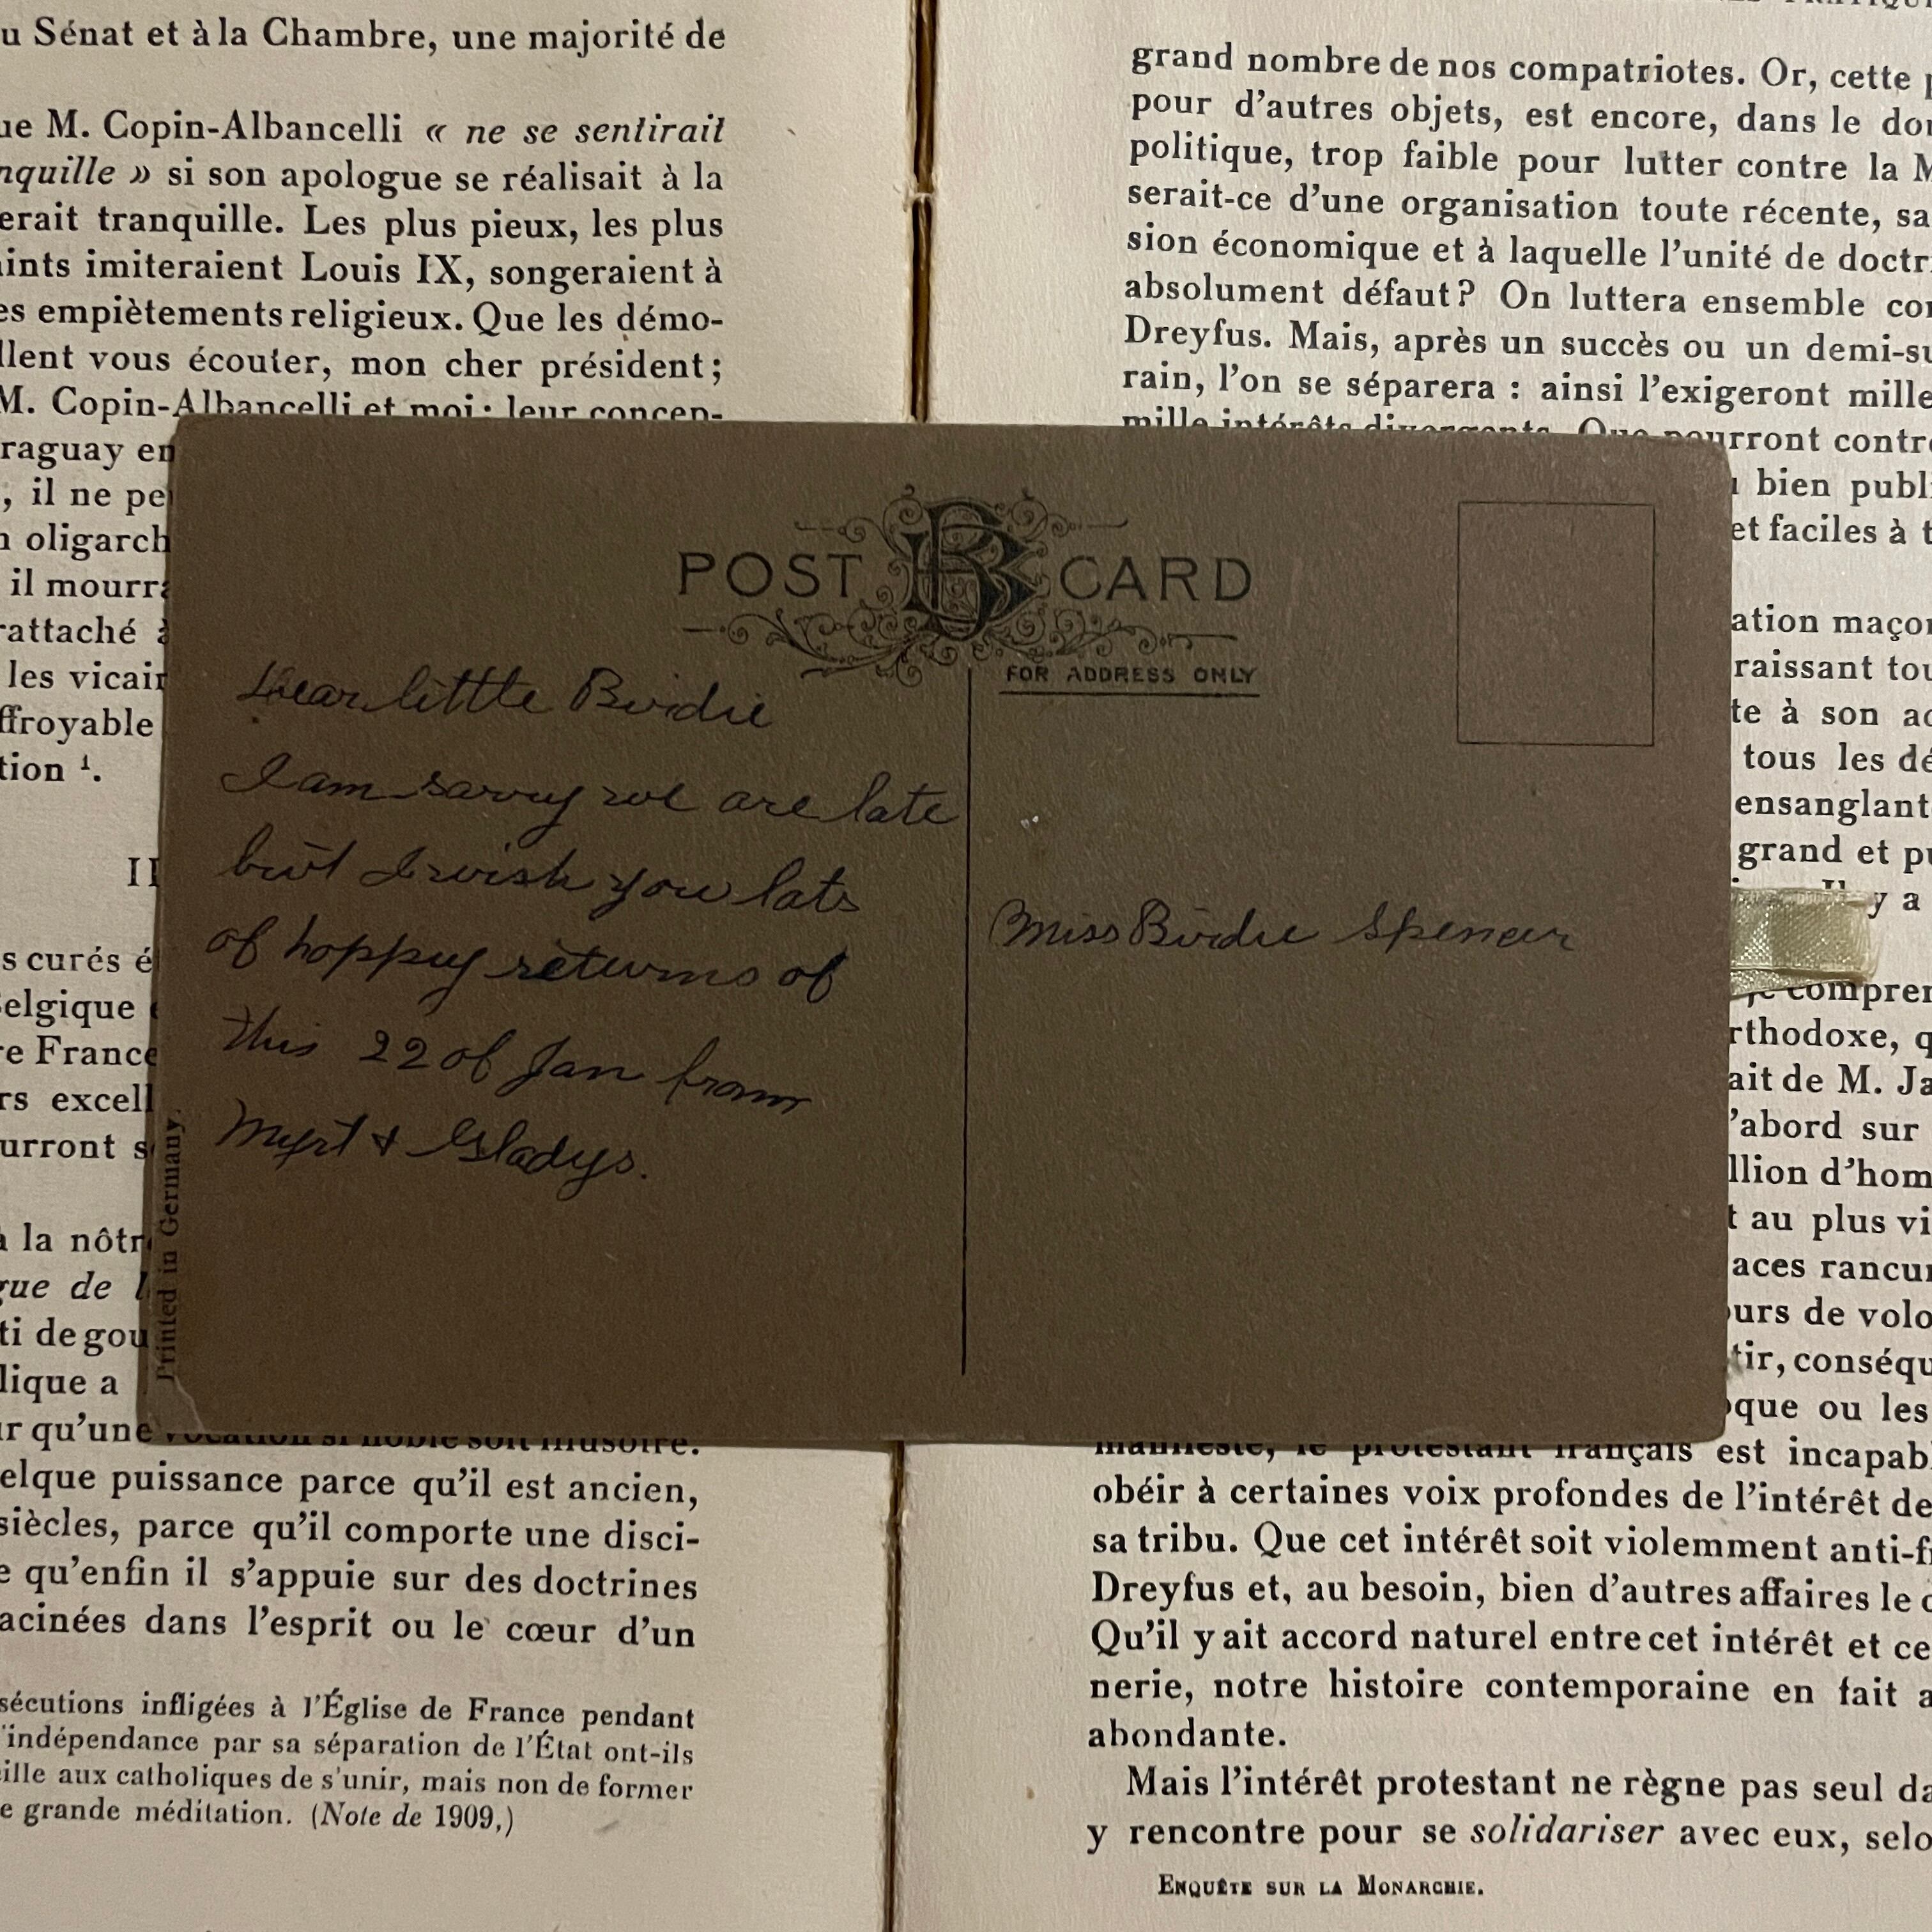 u Sénat et à la Chambre, une majorité de
ue M. Copin-Albancelli « ne se sentirait
nquille » si son apologue se réalisait à la
erait tranquille. Les plus pieux, les plus
aints imiteraient Louis IX, songeraient à
es empiètements religieux. Que les démo-
llent vous écouter, mon cher président;
M. Copin-Albancelli et moi: leur concep-
raguay en
, il ne pe
n oligarch
il mourra
rattaché à
les vicair
ffroyable
tion ¹.
II
s curés é
Belgique
re France
rs excell
urront s
à la nôtr
gue de l
ti de gou
lique a
ur qu'une vocation si noble soit illusoire.
elque puissance parce qu'il est ancien,
siècles, parce qu'il comporte une disci-
e qu'enfin il s'appuie sur des doctrines
acinées dans l'esprit ou le cœur d'un
sécutions infligées à l'Église de France pendant
'indépendance par sa séparation de l'État ont-ils
ille aux catholiques de s'unir, mais non de former
e grande méditation. (Note de 1909,)
POST CARD
FOR ADDRESS ONLY
Dear little Birdie
I am sorry we are late
but I wish you lots
of happy returns of
this 22 of Jan from
Myrt & Gladys.
Printed in Germany.
Miss Birdie Spencer
grand nombre de nos compatriotes. Or, cette p
pour d'autres objets, est encore, dans le dom
politique, trop faible pour lutter contre la M
serait-ce d'une organisation toute récente, sa
sion économique et à laquelle l'unité de doctri
absolument défaut? On luttera ensemble con
Dreyfus. Mais, après un succès ou un demi-su
rain, l'on se séparera : ainsi l'exigeront mille
mille intérêts divergents. Que pourront contre
bien publi
et faciles à t
ation maçon
raissant tou
te à son ac
tous les dé
ensanglant
grand et pu
Il y a
je compren
rthodoxe, q
ait de M. Ja
'abord sur
llion d'hom
t au plus vi
aces rancun
ours de volo
tir, conséqu
oque ou les
manifeste, le protestant français est incapab
obéir à certaines voix profondes de l'intérêt de
sa tribu. Que cet intérêt soit violemment anti-f
Dreyfus et, au besoin, bien d'autres affaires le
Qu'il y ait accord naturel entre cet intérêt et ce
nerie, notre histoire contemporaine en fait a
abondante.
Mais l'intérêt protestant ne règne pas seul da
y rencontre pour se solidariser avec eux, selo
ENQUÊTE SUR LA MONARCHIE.